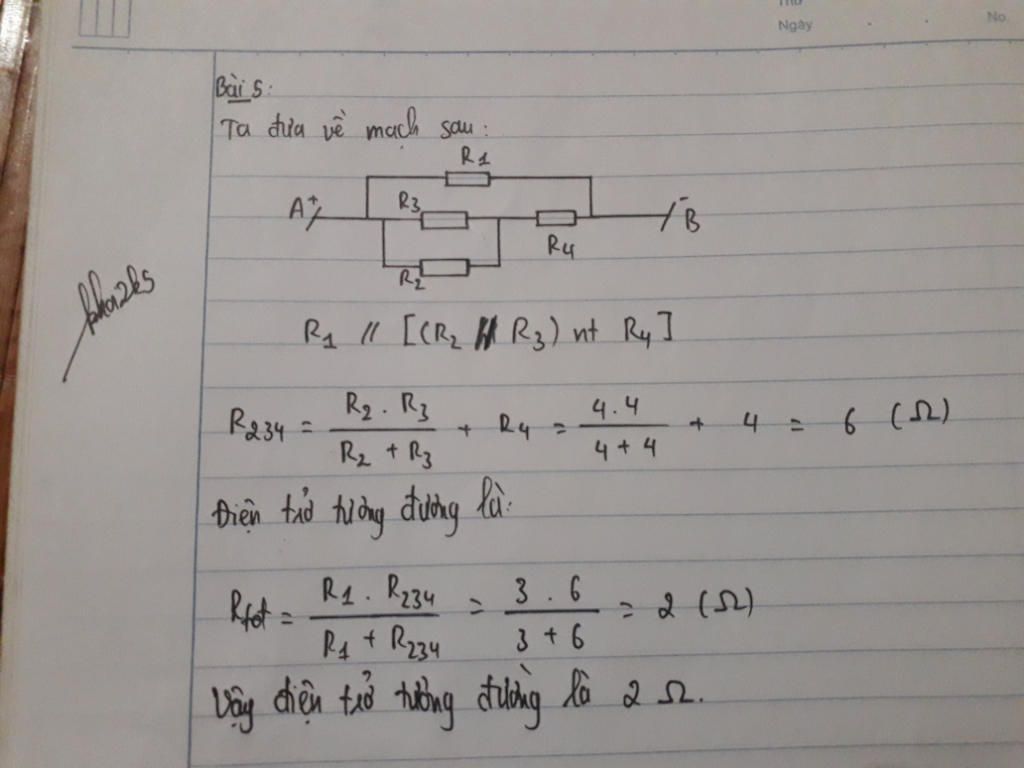 Thứ
Ngày
No.
Bài 5:
Ta đưa về mạch sau:
R1
A+ R3 -B
R4
R2
khoi2k5
R1 // [(R2 // R3) nt R4]
R234 = R2 . R3 / R2 + R3 + R4 = 4.4 / 4+4 + 4 = 6 (Ω)
Điện trở tương đương là:
Rtđ = R1 . R234 / R1 + R234 = 3 . 6 / 3 + 6 = 2 (Ω)
Vậy điện trở tương đương là 2 Ω.